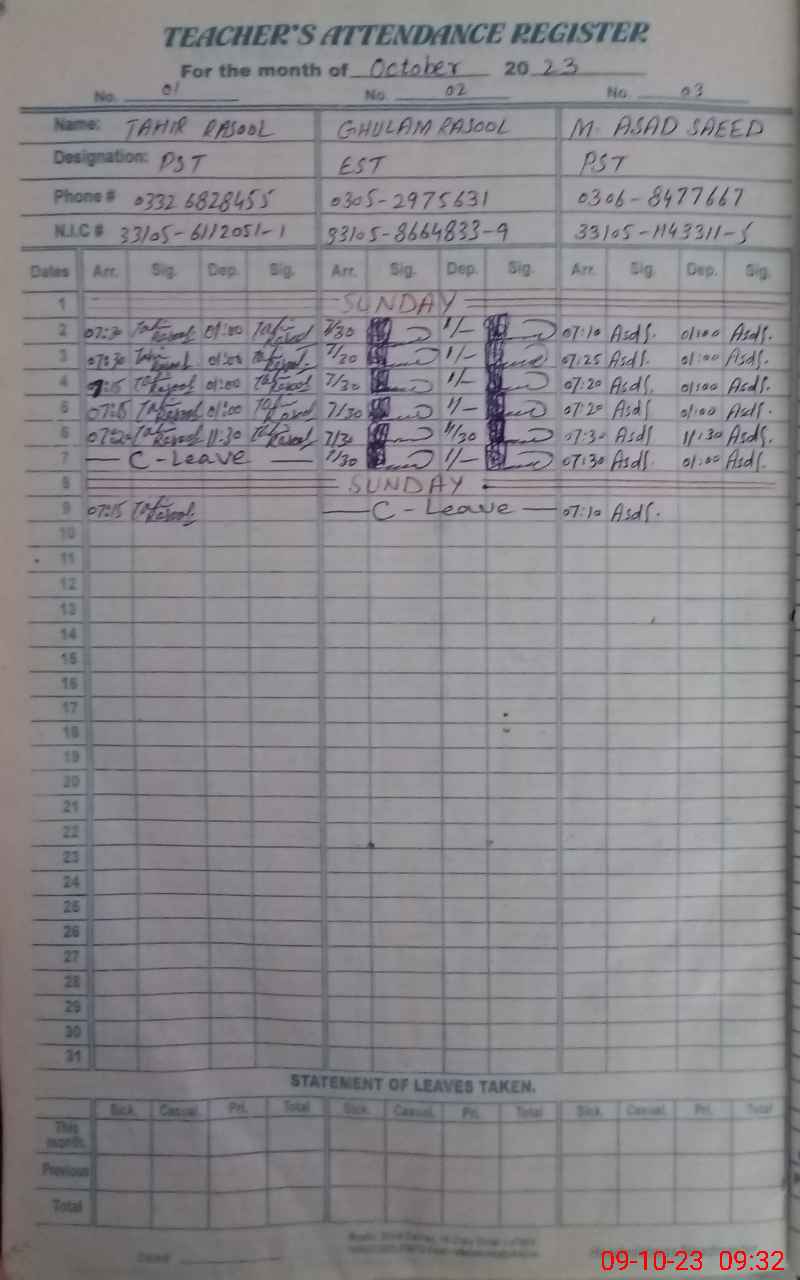 TEACHER'S ATTENDANCE REGISTER
For the month of October 2023
No. 01 No. 02 No. 03
Name: TAHIR RASOOL GHULAM RASOOL M. ASAD SAEED
Designation: PST EST PST
Phone # 0332 6828455 0305-2975631 0306-8477667
N.I.C # 33105-6112051-1 33105-8664833-9 33105-1143311-5
Dates Arr. Sig. Dep. Sig. Arr. Sig. Dep. Sig. Arr. Sig. Dep. Sig.
1 SUNDAY
2 07:30 Tahir Rasool 01:00 Tahir Rasool 7/30 1/- 07:10 Asdf. 01:00 Asdf.
3 07:30 Tahir Rasool 01:00 Tahir Rasool 7/30 1/- 07:25 Asdf. 01:00 Asdf.
4 7:15 Tahir Rasool 01:00 Tahir Rasool 7/30 1/- 07:20 Asdf. 01:00 Asdf.
5 07:15 Tahir Rasool 01:00 Tahir Rasool 7/30 1/- 07:20 Asdf. 01:00 Asdf.
6 07:20 Tahir Rasool 11:30 Tahir Rasool 7/30 11/30 07:30 Asdf 11:30 Asdf.
7 C-Leave 7/30 1/- 07:30 Asdf. 01:00 Asdf.
8 SUNDAY
9 07:15 Tahir Rasool C-Leave 07:10 Asdf.
10
11
12
13
14
15
16
17
18
19
20
21
22
23
24
25
26
27
28
29
30
31
STATEMENT OF LEAVES TAKEN.
Sick. Casual. Pri. Total Sick. Casual. Pri. Total Sick. Casual. Pri. Total
This month.
Previous
Total
09-10-23 09:32